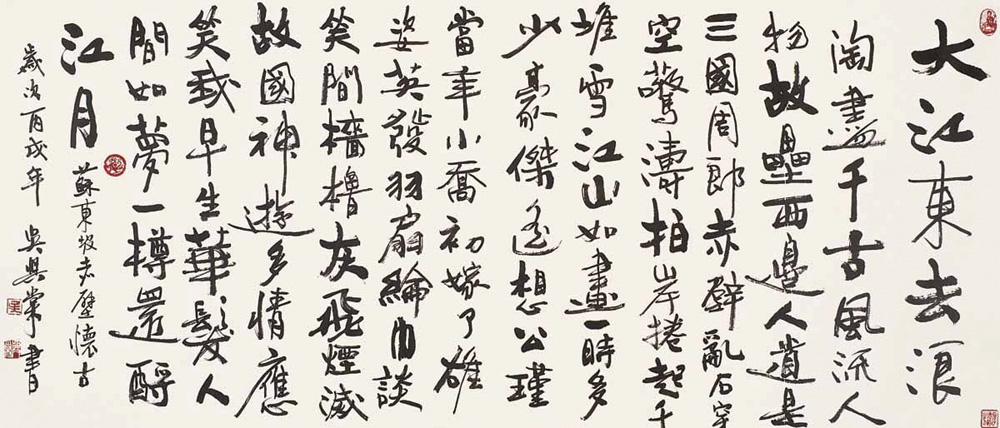 大江東去浪
淘盡千古風流人
物故壘西邊人道是
三國周郎赤壁亂石穿
空驚濤拍岸捲起千
堆雪江山如畫一時多
少豪傑遙想公瑾
當年小喬初嫁了雄
姿英發羽扇綸巾談
笑間檣櫓灰飛煙滅
故國神遊多情應
笑我早生華髮人
間如夢一樽還酹
江月
蘇東坡赤壁懷古
歲次丙戌年 吳興 書